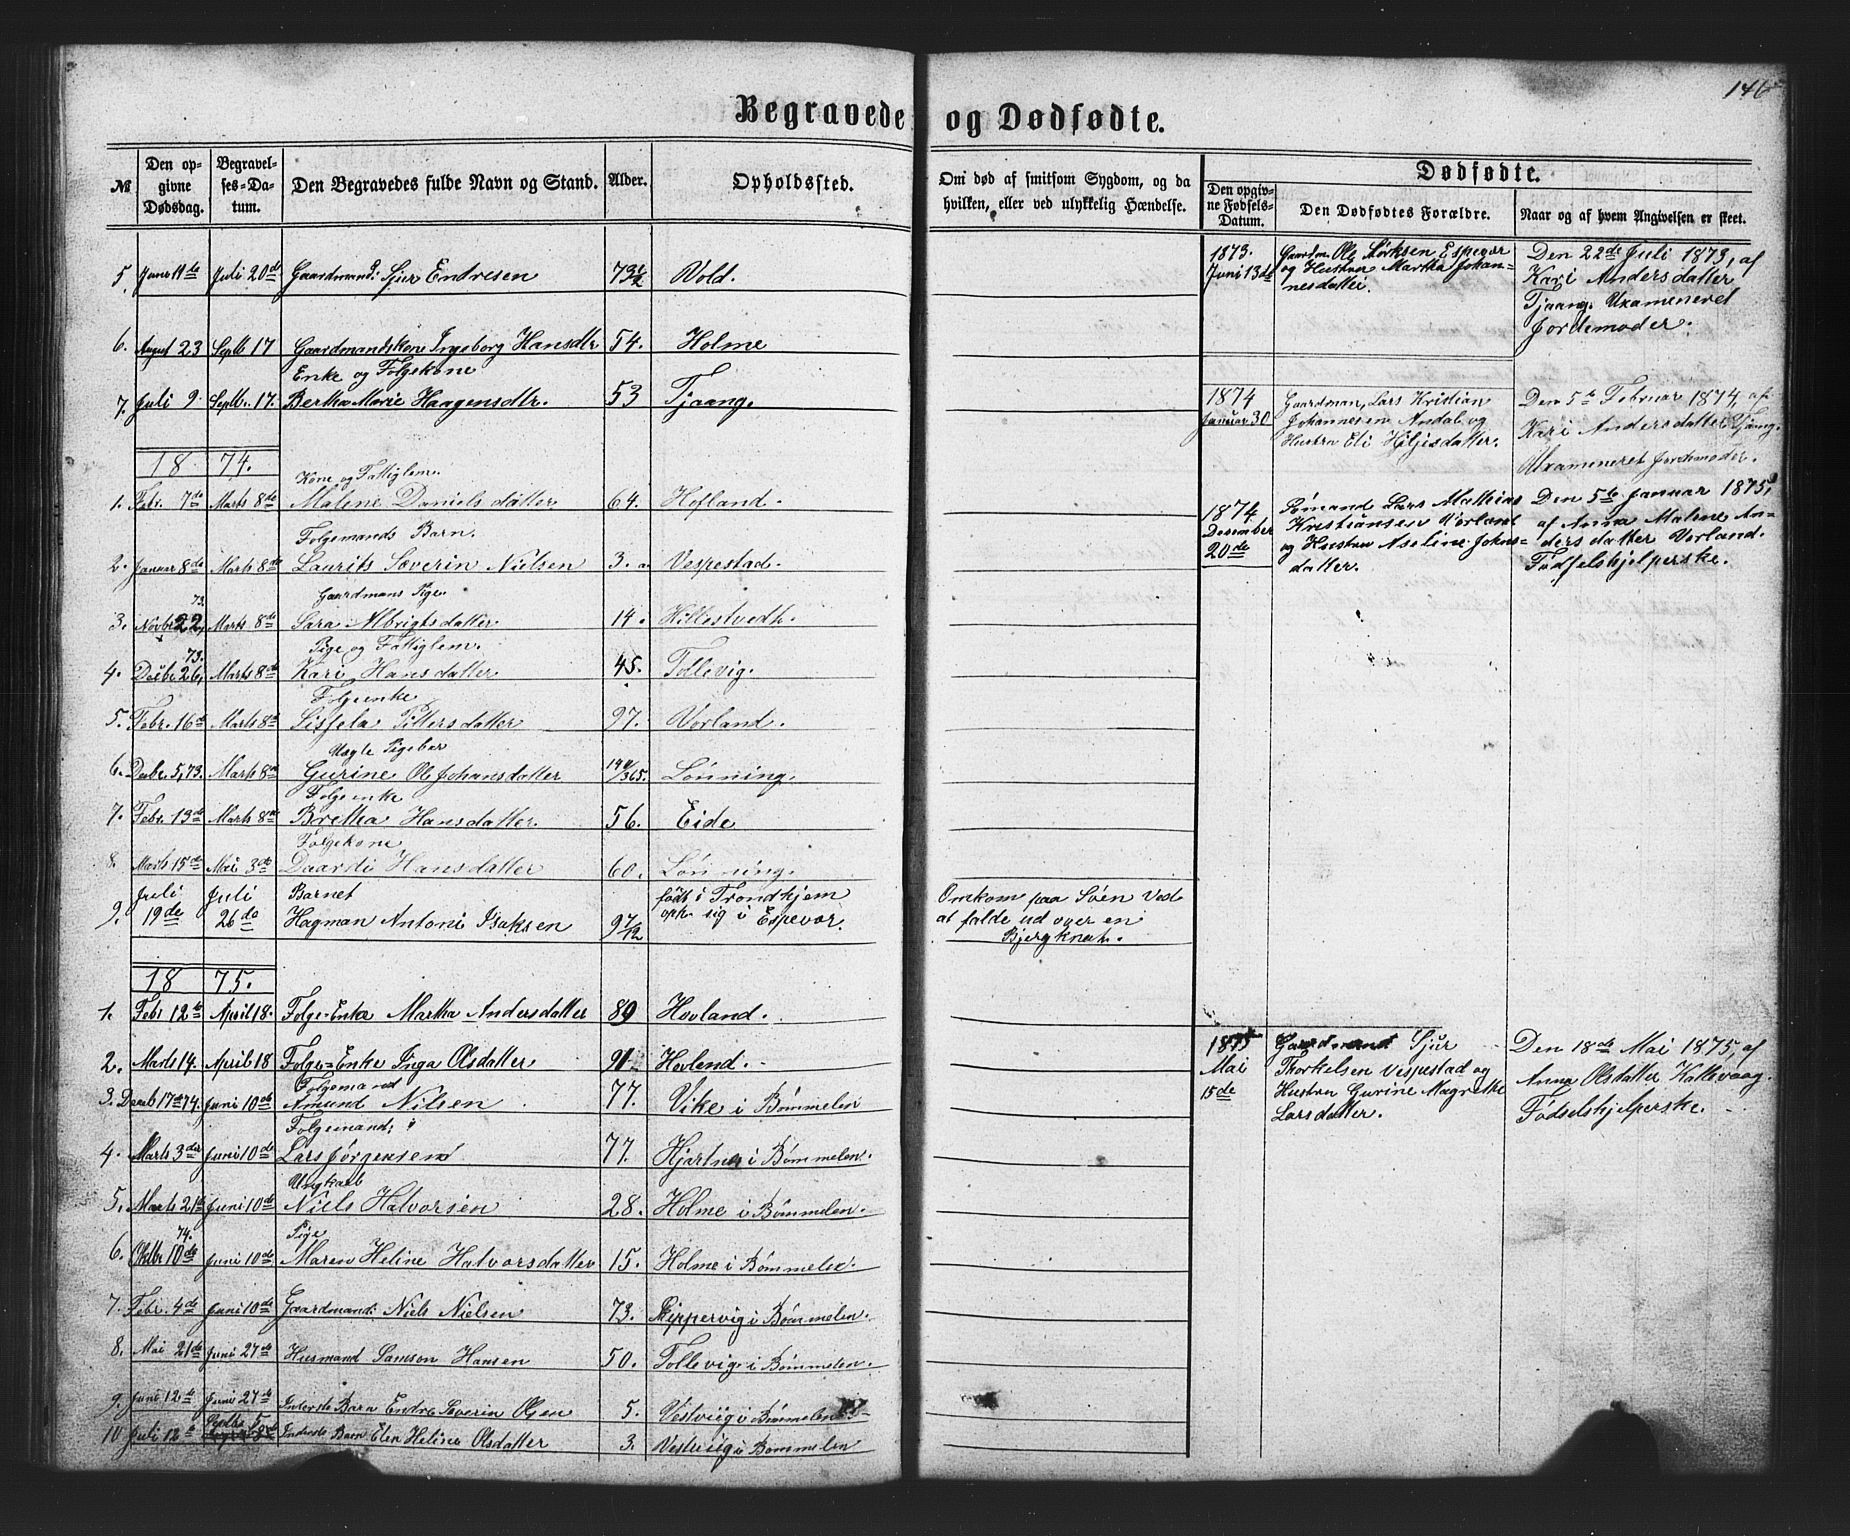 146
Begravede og Dødfødte.
№ Den opgivne Dødsdag. Begravelses-Datum. Den Begravedes fulde Navn og Stand. Alder. Opholdssted. Om død af smitsom Sygdom, og da hvilken, eller ved ulykkelig Hændelse.
Dødfødte.
Den opgivne Fødsels-Datum. Den Dødfødtes Forældre. Naar og af hvem Angivelsen er skeet.
5. Juni Juli 20de Gaardmand: Sjur Endresen 73 1/2 Vold.
6. August 23 Septb 17 Gaardmandskone Ingeborg Hansdtr 54. Holme
Enke og Folgekone
7. Juli 9. Septb. 17. Bertha Marie Haagensdtr. 53 Tjaang.
18 74.
Kone og Fattiglem.
1. Febr. 7de Marts 8de Malene Daniels datter 64. Hofland.
Folgemands Barn.
2. Januar 8de Marts 8de Laurits Severin Nielsen 3. Vespestad.
Gaardmans Pige.
73.
3. Novbr 22, Marts 8de Sara Albrigtsdatter 14. Hillestvedt.
Pige og Fattiglem.
73.
4. Decbr 26, Marts 8de Kari Hansdatter 45. Tollevig.
Folgeenke
5. Febr. 16de Marts 8de Sissela Pittersdatter 97. Vorland.
Uægte Pigebar
6. Decbr. 5, 73. Marts 8de Gurine Ol Johansdatter 14/365. Lønning.
Folgeenke
7. Febr. 13de Marts 8de Bretha Hansdatter. 56. Eide
Folgekone
8. Marts 15de Mai 3de Daardi Hansdatter 60. Lønning.
Juli Juli Barnet født i Trondhjem
9. 19de 26de Hagman Antoni Isaksen 9 7/12 oph. sig i Espevær.
Omkom paa Søen Ved
at falde ud over en
Bjergknat.
18 75.
1. Febr 12te April 18. Folge-Enke Martha Andersdatter 89 Hovland.
2. Marts 14. April 18 Folge-Enke Inga Olsdatter 91 Hovland.
Folgemand
3. Decb 17de 74. Juni 10de Amund Nilsen 77. Vike i Bømmelen
Folgemand:
4. Marts 3die Juni 10de Lars Jørgensen 77. Hjartnes i Bømmelen.
Ungkarl
5. Marts 21de Juni 10de Niels Halvorsen 28. Holme i Bømmelen.
74. Pige
6. Oktbr 10de Juni 10de Maren Heline Halvorsdatter 15. Holme i Bømmelen.
7. Febr. 4de Juni 10de Gaardmand: Niels Nielsen 73. i Bømmelen.
8. Mai 21de Juni 27de Husmand Samson Hansen 50. Tollevig i Bømmelen.
9. Juni 12te Juni 27de Inderste Barn Endre Severin Olsen 5. Vestviig i Bømmelen
Septbr 5
10 Juli 12te 8de Inderste Barn Elen Heline Olsdatter 3. Vestviig i Bømmelen
1873.
Juni 13de
Gaardm Ole Størksen Espevær
og Hustru Martha Johan-
nesdatter.
Den 22de Juli 1873, af
Kari Andersdatter
Tjaang. Uxamineret
Jordemoder.
1874
Januar 30
Gaardman, Lars Kristian
Johannesen Ansdal og
Hustru Eli Hiljesdatter.
Den 5te Februar 1874 af
Kari Andersdatter Tjaang.
Uxamineret Jordemoder.
1874
Desember
20de
Lars Mathias
Kristiansen Vorland
og Hustru Aseline Johns-
datter.
Den 5te Januar 1875,
af Anna Malene An-
ders datter Vorland.
Fødselshjelperske.
1875
Mai
15de
Gaardmand Sjur
Thorkelsen Vespestad og
Hustru Gurine Magrethe
Larsdatter.
Den 18de Mai 1875, af
Anna Olsdatter Kallevaag.
Fødselshjelperske.